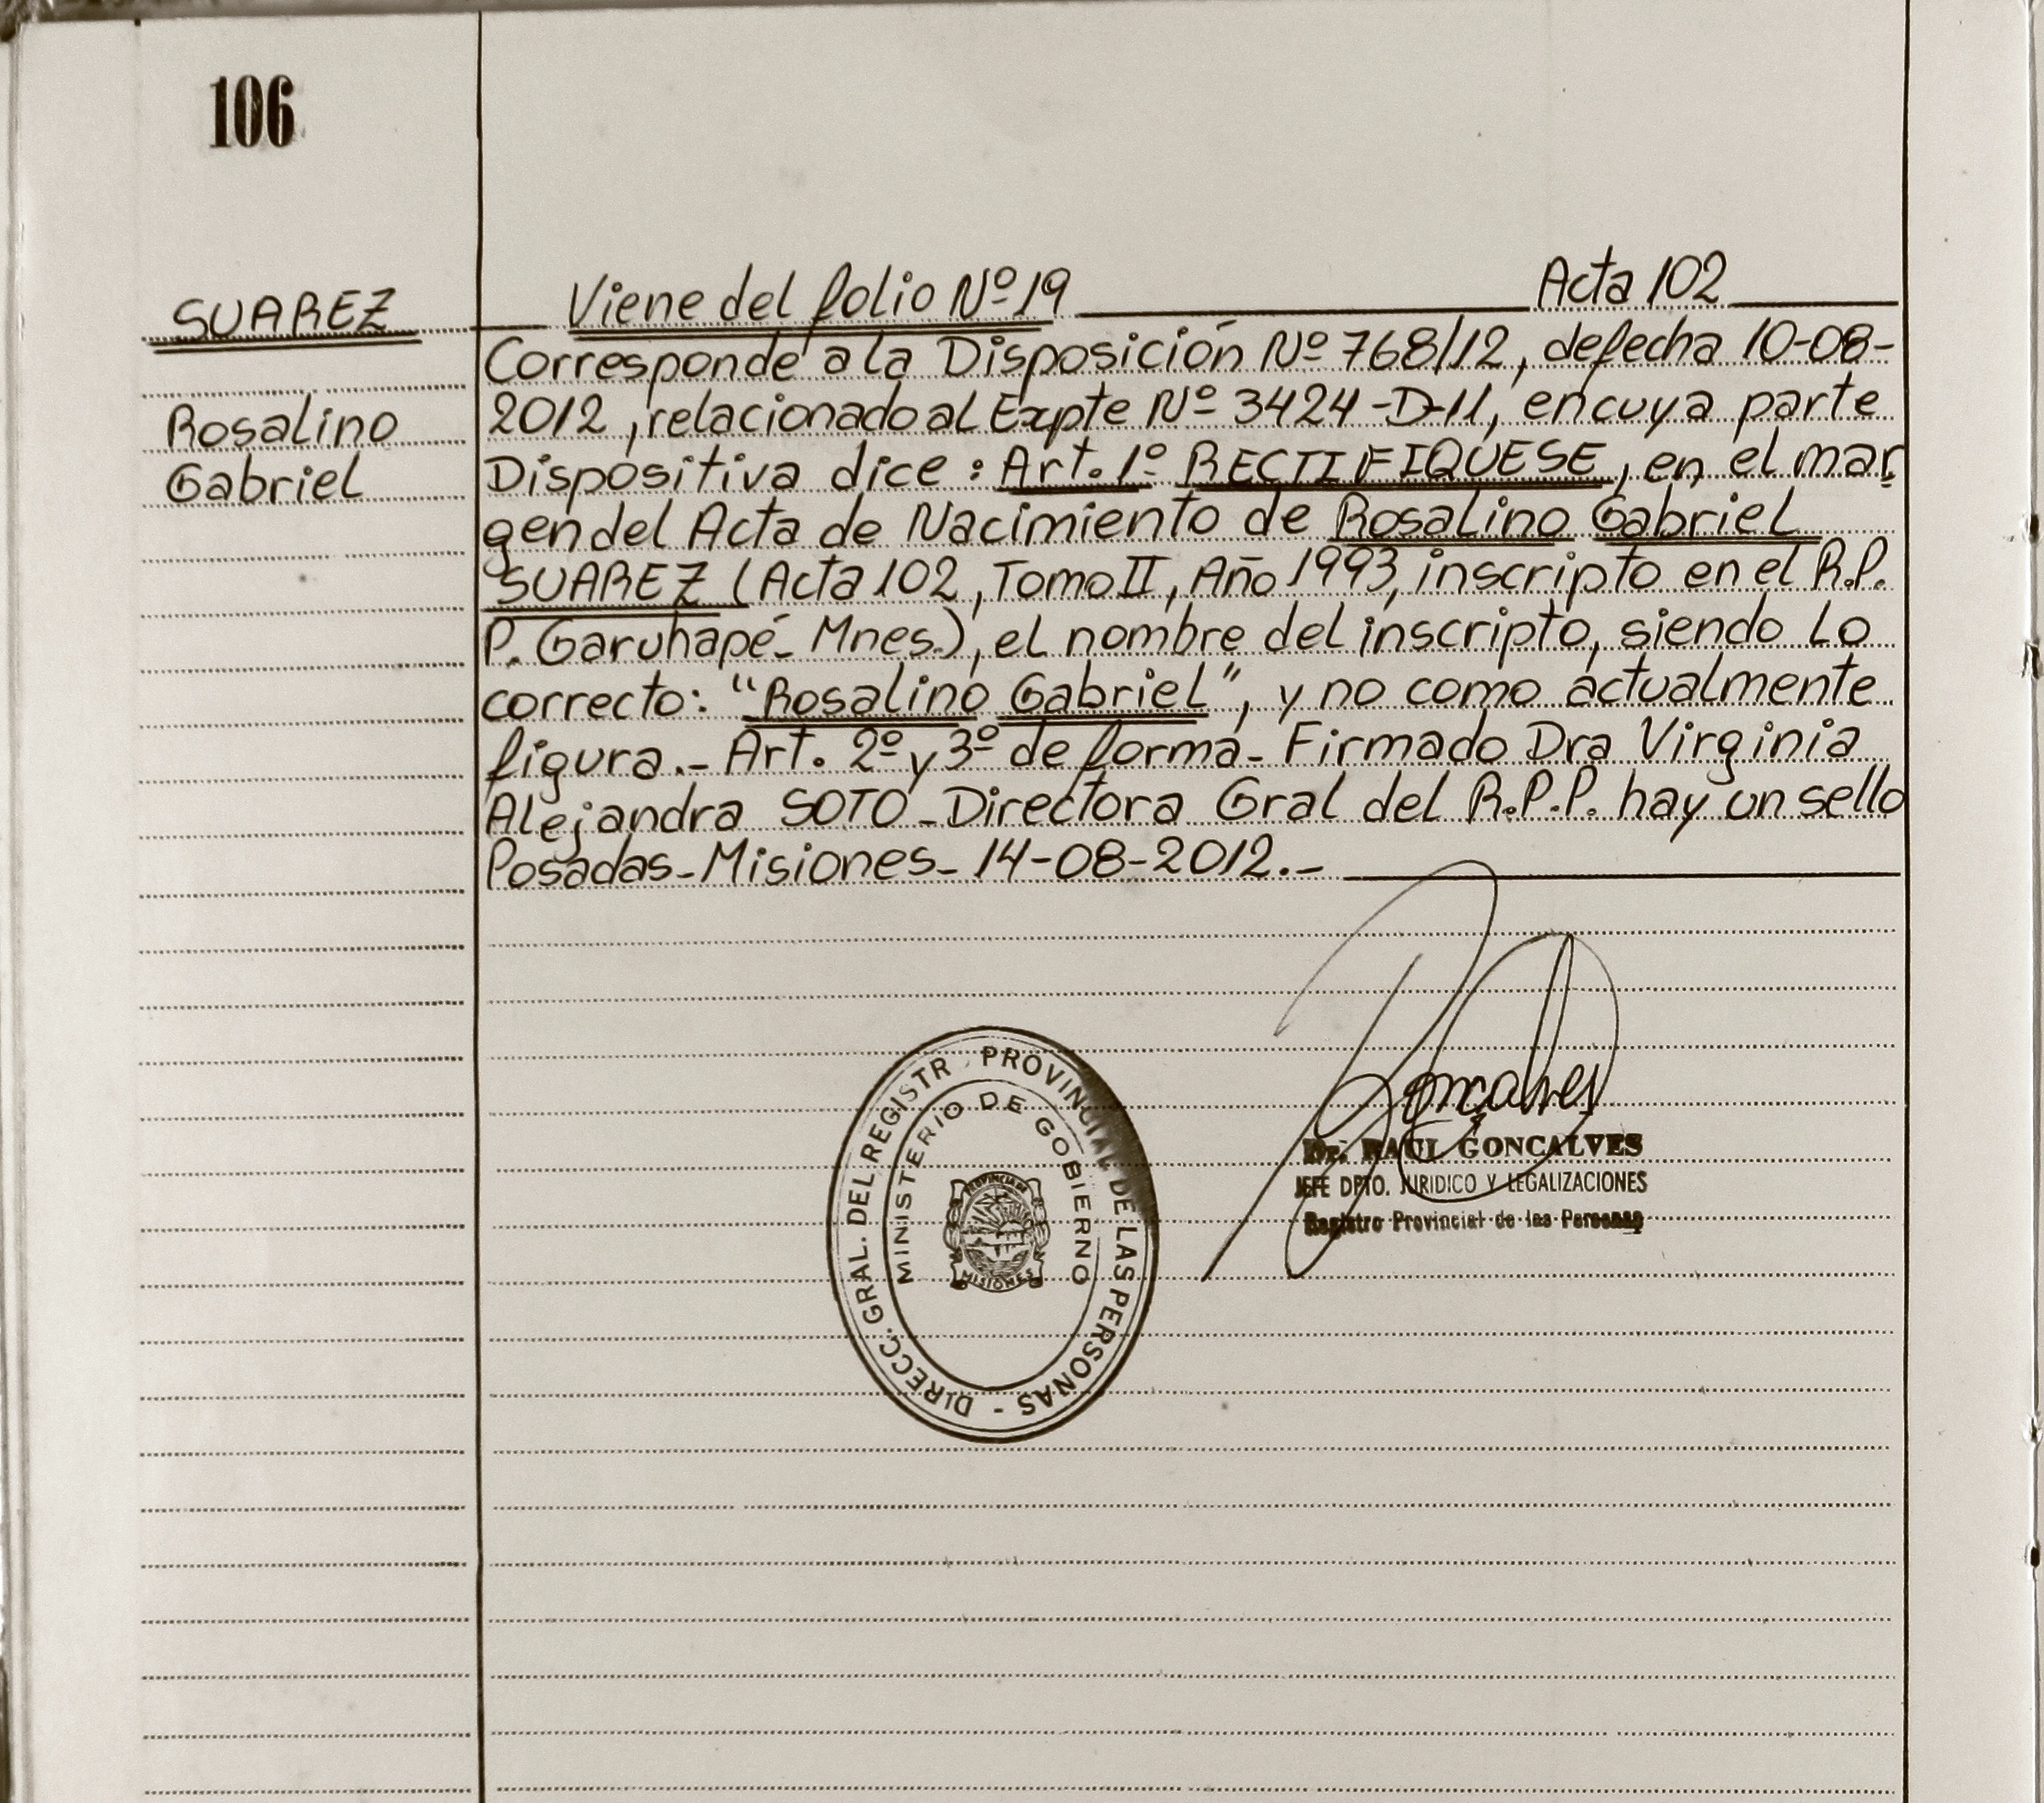 106
SUAREZ
Rosalino
Gabriel
Viene del folio Nº 19 Acta 102
Corresponde a la Disposición Nº 768/12, de fecha 10-08-
2012, relacionado al Expte Nº 3424-D-11, en cuya parte
Dispositiva dice: Art. 1º RECTIFIQUESE, en el mar
gen del Acta de Nacimiento de Rosalino Gabriel
SUAREZ (Acta 102, Tomo II, Año 1993, inscripto en el R.P.
P. Garuhapé- Mnes.), el nombre del inscripto, siendo Lo
correcto: "Rosalino Gabriel", y no como actualmente
figura.- Art. 2º y 3º de forma- Firmado Dra Virginia
Alejandra SOTO-Directora Gral del R.P.P. hay un sello
Posadas-Misiones- 14-08-2012.-
DIRECC. GRAL. DEL REGISTR PROVINCIAL DE LAS PERSONAS -
MINISTERIO DE GOBIERNO
PROVINCIA DE
MISIONES
Goncalves
Dr. RAUL GONCALVES
JEFE DPTO. JURIDICO Y LEGALIZACIONES
Registro Provincial de las Personas